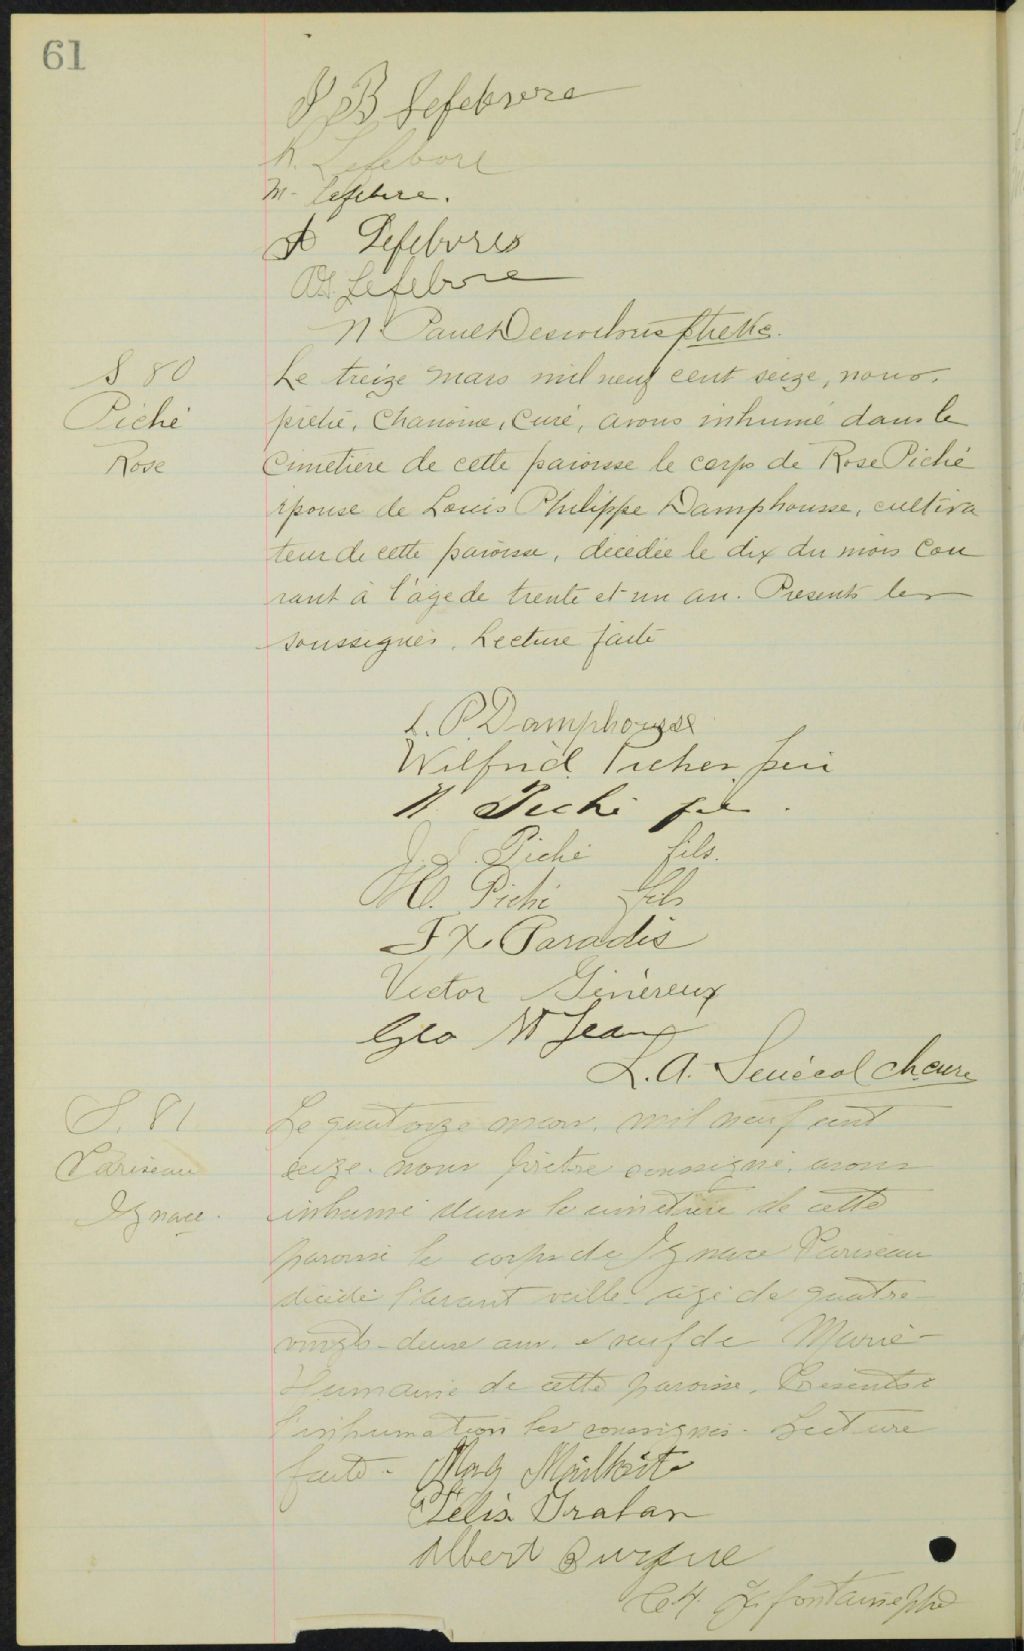 61
J B Lefebvre
R. Lefebvre
M. Lefebvre.
A Lefebvres
Lefebvre
N. Paul Desrochers ptre Vic.
S 80
Piché
Rose
Le treize mars mil neuf cent seize, nous,
prêtre, Chanoine, Curé, avons inhumé dans le
Cimetière de cette paroisse le corps de Rose Piché
épouse de Louis Philippe Damphousse, cultiva
teur de cette paroisse, décédée le dix du mois cou
rant à l'âge de trente et un an. Présents les
soussignés. Lecture faite
L. P. Damphousse
Wilfrid Picher père
N Piché fils.
J. J. Piché fils.
H. Piché fils
F X Paradis
Victor Généreux
Geo St Jean
L. A. Sénécal Ch. curé
S. 81
Pariseau
Ignace.
Le quatorze mars, mil neuf cent
seize, nous prêtre soussigné, avons
inhumé dans le cimetière de cette
paroisse le corps de Ignace Pariseau
décédé l'avant veille âgé de quatre-
vingts-deux ans, veuf de Marie-
de cette paroisse. Présents à
l'inhumation les soussignés. Lecture
faite.
Mailhot
Félix Gratan
Albert
Ch. Lafontaine Ptre